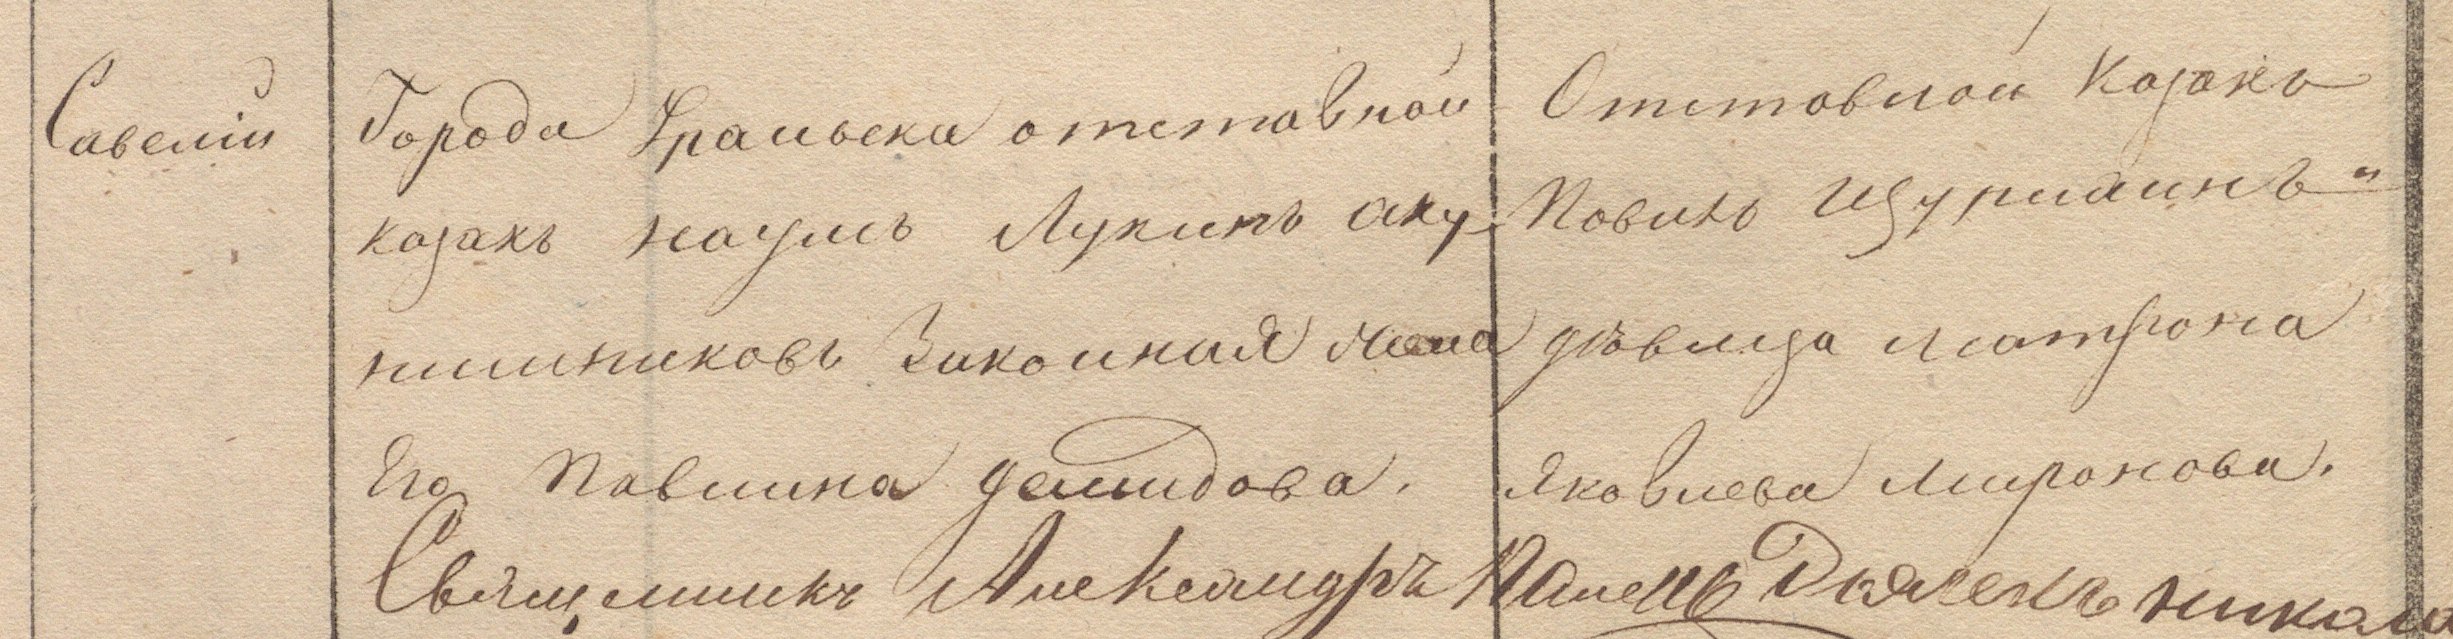 Савелій
Города Уральска отставной
казакъ наумъ Лукинъ аку
тинниковъ Законная жена
Его павлина демидова.
Отставной Казакъ
Повилъ Щурихинъ"
дѣвица матрона
яковлева миронова.
Священникъ Александръ Дьяченкъ никола